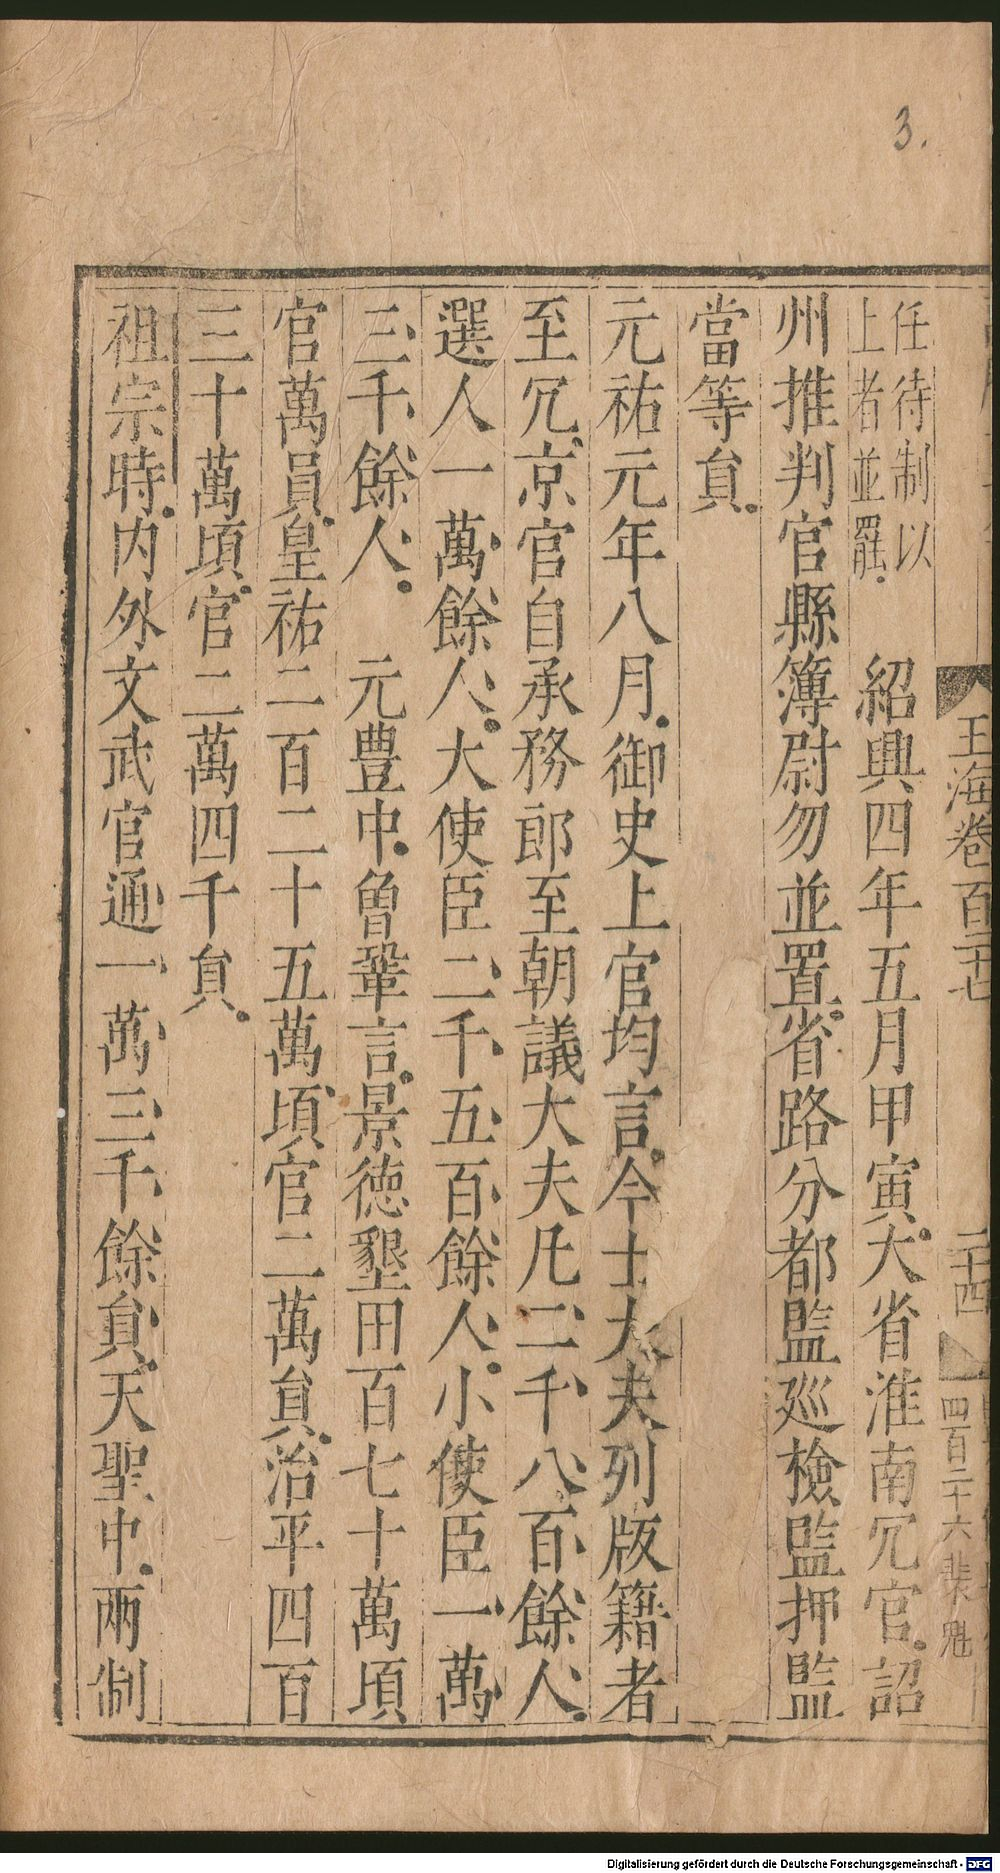 3.
玉海卷百二十七
二十四
四百二十六裴魁
任待制以
上者並罷
紹興四年五月甲寅大省淮南冗官詔
州推判官縣簿尉勿並置省路分都監巡檢監押監
當等員
元祐元年八月御史上官均言今士大夫列版籍者
至冗京官自承務郎至朝議大夫凡二千八百餘人
選人一萬餘人大使臣二千五百餘人小使臣一萬
三千餘人 元豐中曾鞏言景德墾田百七十萬頃
官萬員皇祐二百二十五萬頃官二萬員治平四百
三十萬頃官二萬四千員
祖宗時内外文武官通一萬三千餘員天聖中兩制
Digitalisierung gefördert durch die Deutsche Forschungsgemeinschaft - DFG